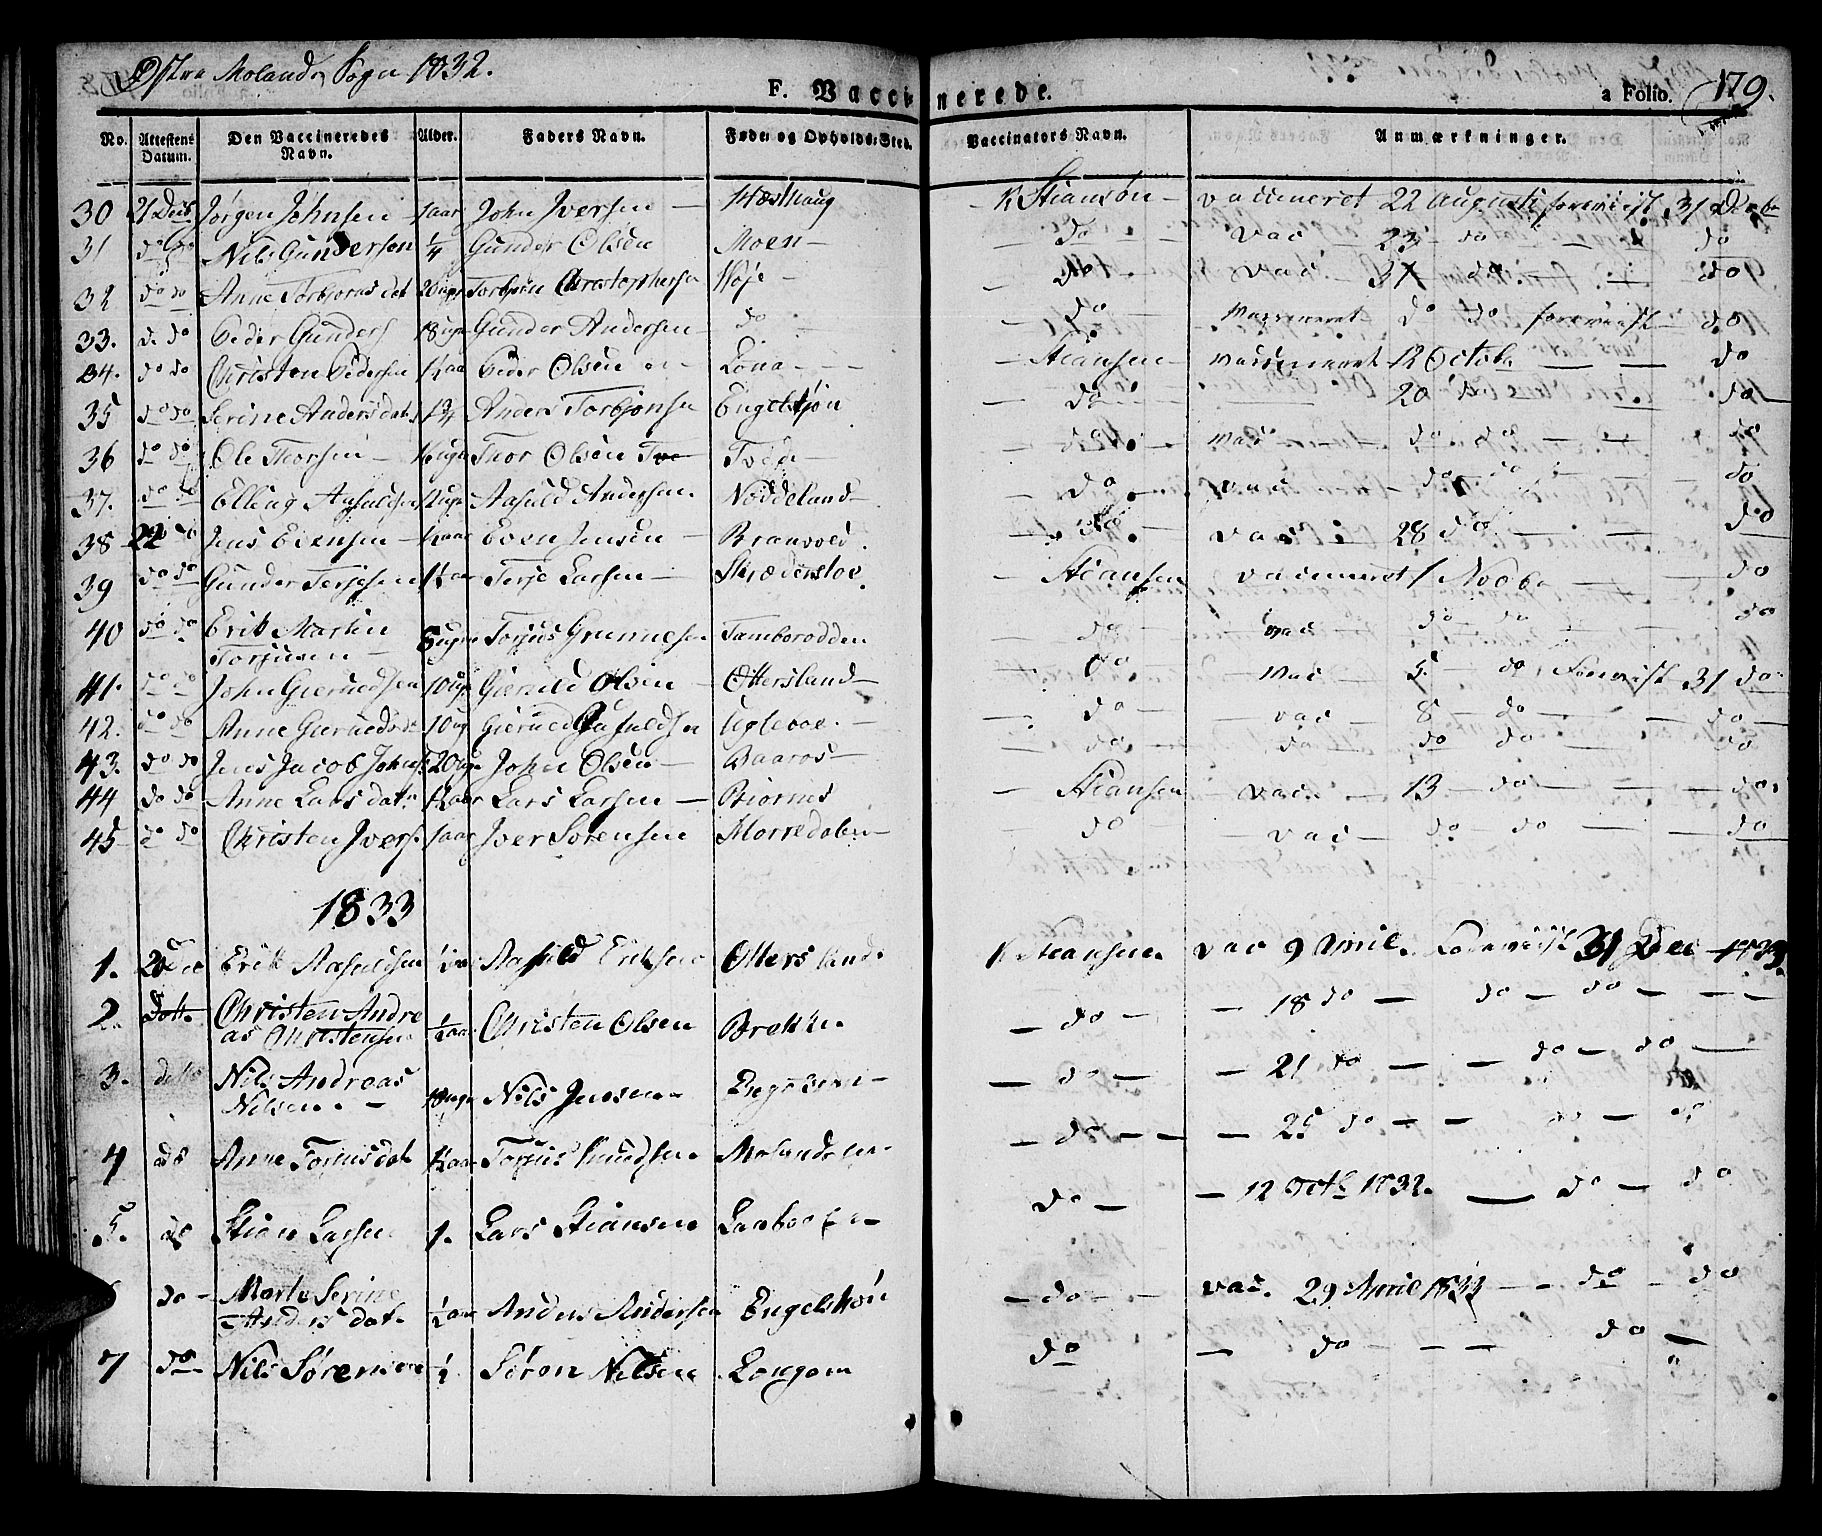 Østre Molands Sogn 1832.
F. Vaccinerede. a Folio. 179.
No. Attestens Datum. Den Vaccineredes Navn. Alder. Faders Navn. Føde- og Opholds-Sted. Vaccinators Navn. Anmærkninger.
30 21 Decb Jørgen Johnsen - 1 aar John Iversen - Hæsthaug - K Stiansøn - vaccineret 22 Augusti foreviist 31 Decbr
31 do do Nils Gundersen 1/4 Gunder Olsen Moen - - do - vac - 23 - do - do
32 do do Anne Torbjornsdat 20 ugr Torbjørn Christophersen Høje - - do - vac - 31 do - do
33. do do Peder Gunders 18 ugr Gunder Andersen - do - do - vaccineret do do foreviist - do
34. do do Christen Pedersen 1/2 aar Peder Olsen - Løna - - Stiansen - vaccineret 12 Octob - do
35 do do Serine Andersdat 1 3/4 Anders Torbjonsen Engelstjøn - do - 20 do - do
36 do do Ole Thorsen - ugr Thor Olsen Tvede - - do - vac - do do - do
37. do do Elling Aasuldsen ugr Aasuld Andersen Noddeland - - do - vac - do do - do
38 22 do Jens Evensen - 1/2 aar Even Jensen - Branvold. - do - vac - 28 do - do
39 do do Gunder Terjesen 1/2 aar Terje Larsen - Skræderstoe. - Stiansen vaccineret 1 Novbr - do
40 do do Erik Martin
Torjusen - 6 ugr Torjus Grunnesen Tamborodden - do - vac - do do - do
41. do do John Gieruldsen 10 ugr Gieruld Olsen - Ottersland - - do - vac - 5 - do foreviist 31 do
42. do do Anne Gieruldsdr 10 ug Gieruld Aasuldsen Uglevae. - - do - vac - 8 - do - do
43. do do Jens Jacob Johns 20 ugr John Olsen - Baaros - - do - do - do do - do
44 do do Anne Larsdatr 1/2 aar Lars Larsen - Biornes - Stiansen - vac. - 13 - do - do
45 do do Christen Ivers 1 aar Iver Sorensen Morredalen - - do - vac - do - do - do
1833
1. 20 Dec Erik Aasuldsen 1/2 aar Aasuld Eriksen Ottersland. K Stiansen. vac 9 April. Foreviist 31 Dec 1833.
2. Dotto Christen Andre
as Christensen 1/2 aar Christen Olsen Brekke - do - - 18 do - do - do -
3. dotto Nils Andreas
Nilsen. - 18 ugr Nils Jensen - - do - - 21 do - - do - do -
4 do Anne Torjusdat 1/2 aar Torjus Knudsen - do - - - 25 do - - do - do
5. do Stian Larsen 1. Lars Stiansen do - - 12 Octb 1832. - do - do
do - Marte Serine
Andersdat. 1/2 aar Anders Andersen Engelstjøn - do - - vac. 29 April 1833 - - do - do
7 do Nils Sørensen 1/2 Søren Nilsen Longom do - do - - do -